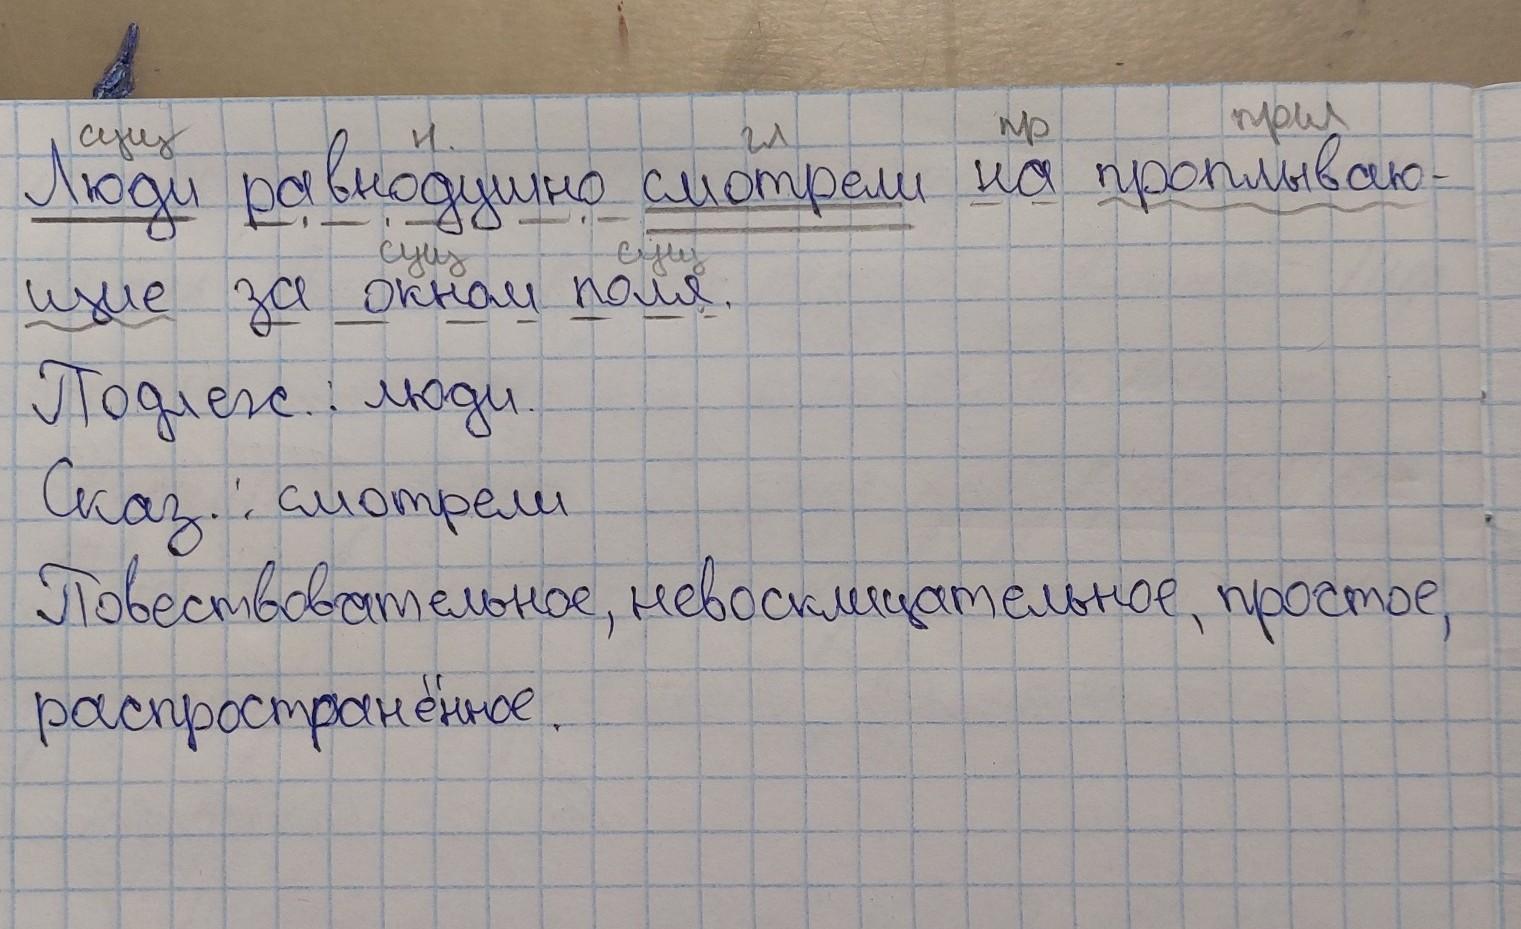 сущ н. гл пр прил
Люди равнодушно смотрели на проплываю-
сущ сущ
щие за окном поля.
Подлеж.: люди.
Сказ.: смотрели
Повествовательное, невосклицательное, простое,
распространённое.